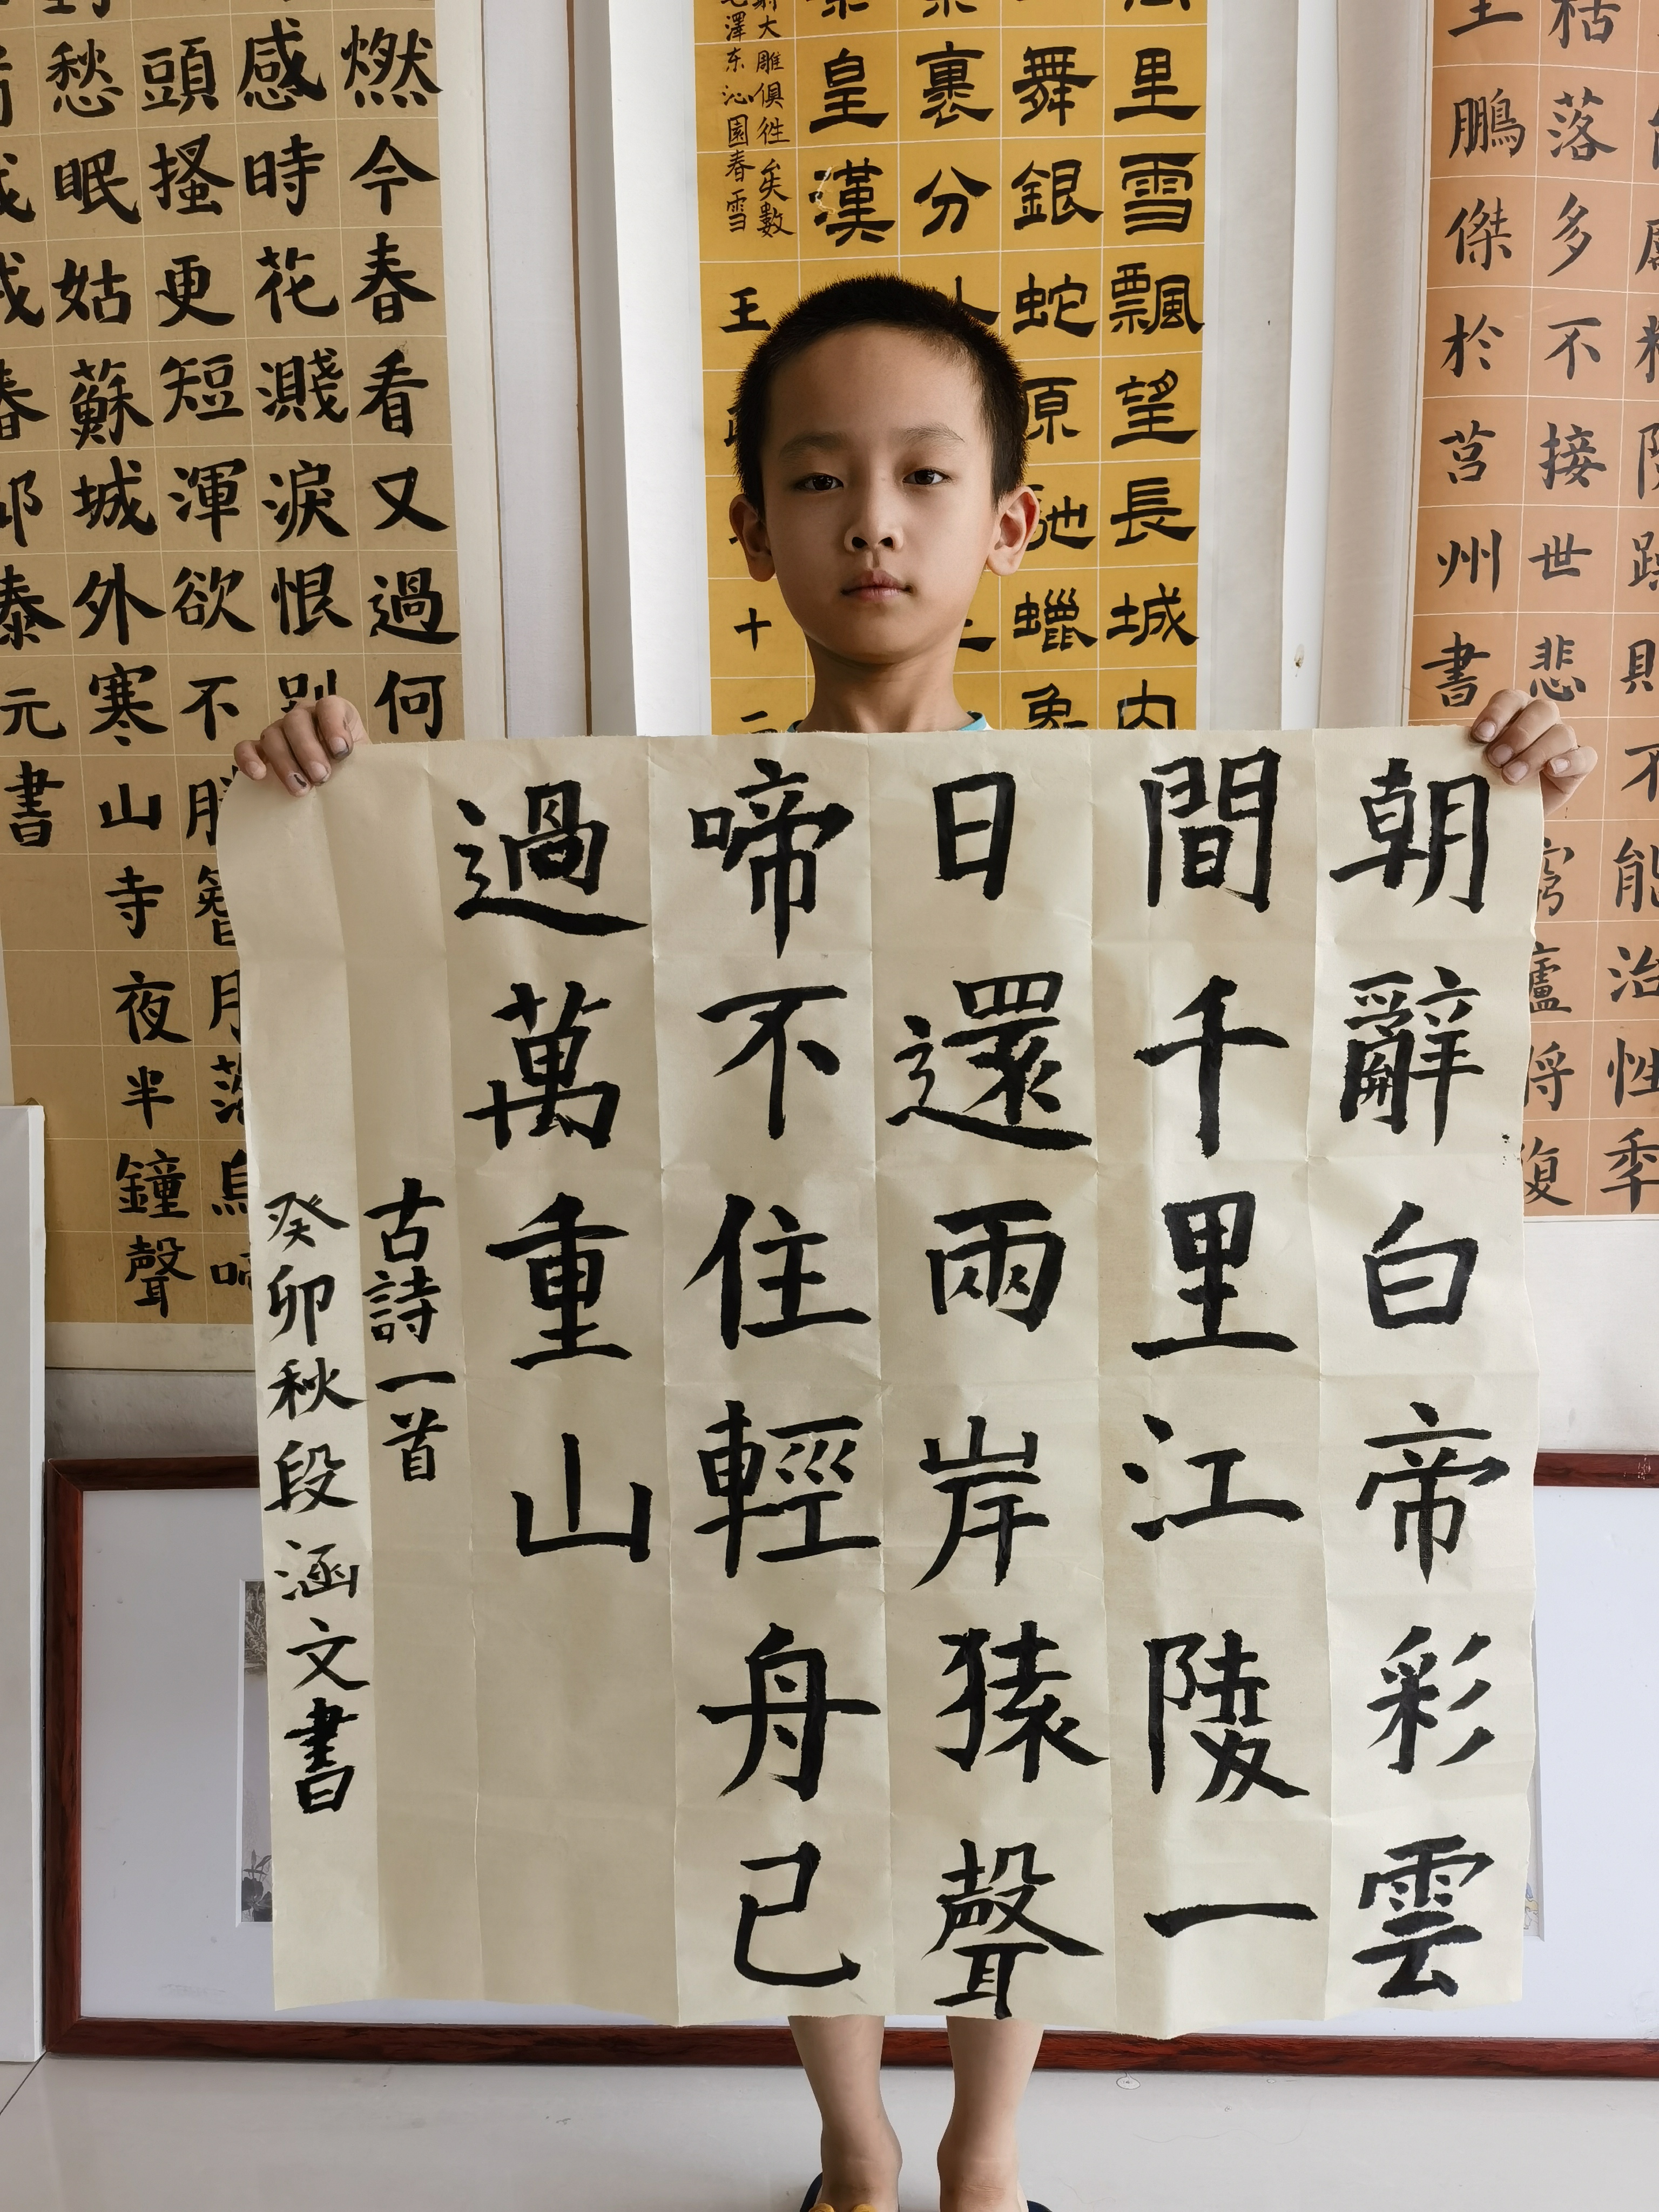 朝辭白帝彩雲
間千里江陵一
日還兩岸猿聲
啼不住輕舟已
過萬重山
古詩一首
癸卯秋段涵文書
燃今春看又過何
感時花濺淚恨別
頭搔更短渾欲不勝簪月落烏啼
愁眠姑蘇城外寒山寺夜半鐘聲
元書
里雪飄望長城内
舞銀蛇原馳蠟象
裏分
皇漢
大雕俱徃矣數
澤东沁園春雪
王
十二
枯落多不接世悲窮廬將復
鵬傑於莒州書
不能治性季